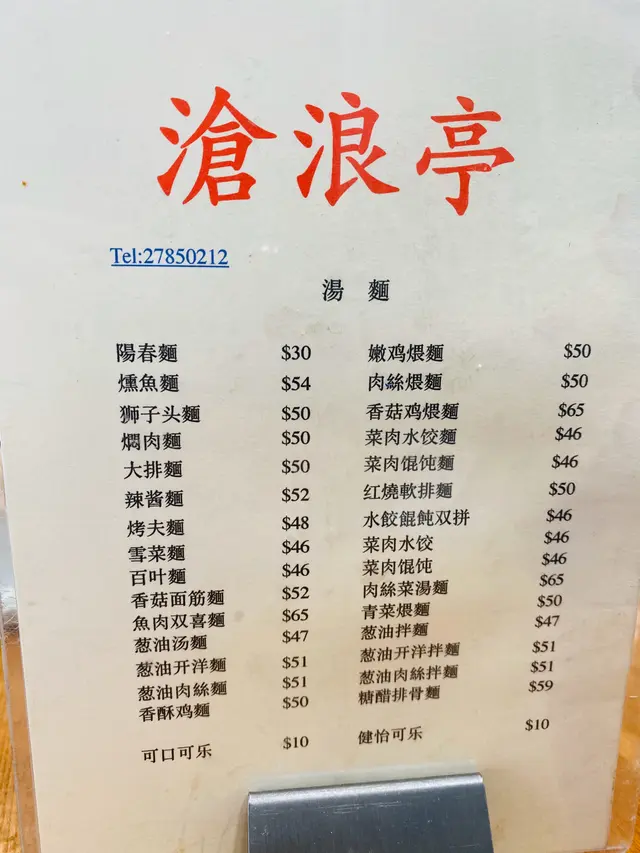 滄浪亭
Tel:27850212
湯 麵
陽春麵 $30 嫩鸡煨麵 $50
燻魚麵 $54 肉絲煨麵 $50
狮子头麵 $50 香菇鸡煨麵 $65
燜肉麵 $50 菜肉水饺麵 $46
大排麵 $50 菜肉馄饨麵 $46
辣酱麵 $52 红燒軟排麵 $50
烤夫麵 $48 水餃餛飩双拼 $46
雪菜麵 $46 菜肉水饺 $46
百叶麵 $46 菜肉馄饨 $46
香菇面筋麵 $52 肉絲菜湯麵 $65
魚肉双喜麵 $65 青菜煨麵 $50
葱油汤麵 $47 葱油拌麵 $47
葱油开洋麵 $51 葱油开洋拌麵 $51
葱油肉絲麵 $51 葱油肉絲拌麵 $51
香酥鸡麵 $50 糖醋排骨麵 $59
可口可乐 $10 健怡可乐 $10